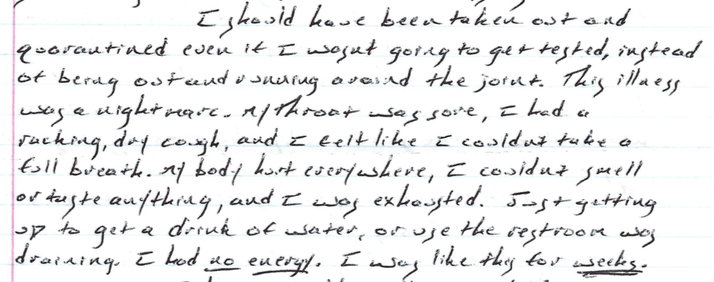 I should have been taken out and
quarantined even if I wasnt going to get tested, instead
of being out and running around the joint. This illness
was a nightmare. My throat was sore, I had a
racking, dry cough, and I felt like I couldnt take a
full breath. My body hurt everywhere, I couldnt smell
or taste anything, and I was exhausted. Just getting
up to get a drink of water, or use the restroom was
draining. I had no energy. I was like this for weeks.